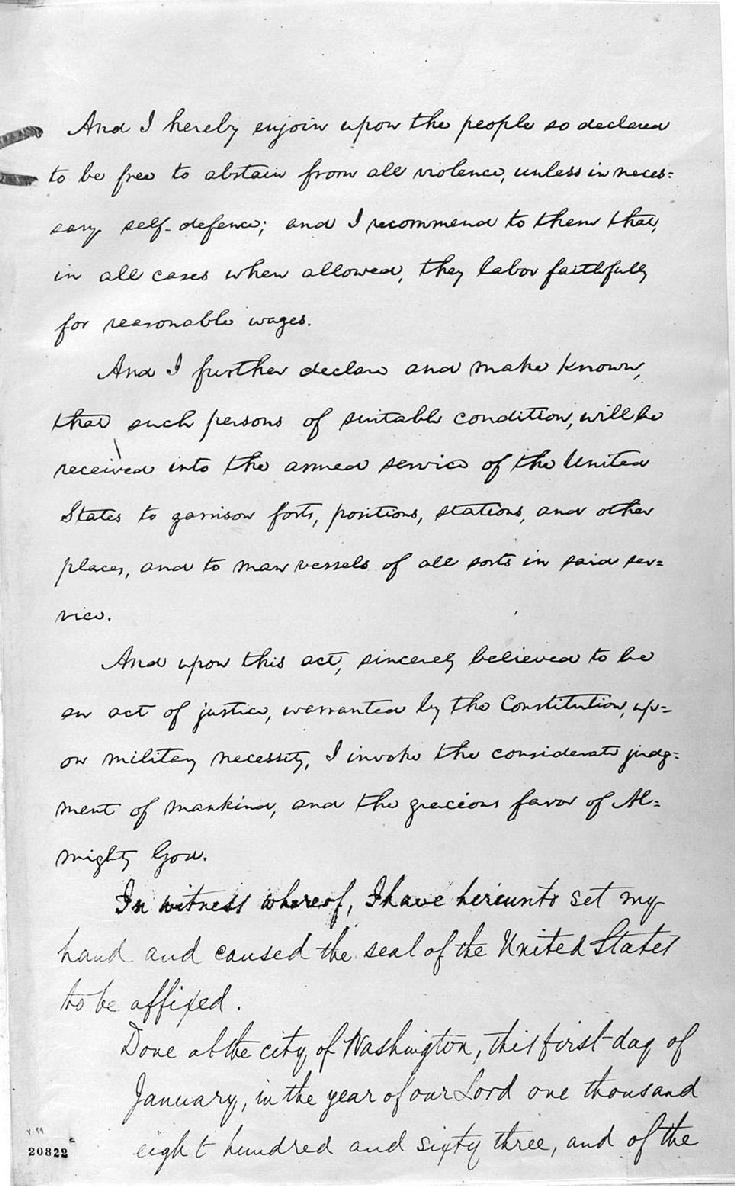 And I hereby enjoin upon the people so declared
to be free to abstain from all violence, unless in neces=
sary self-defence; and I recommend to them that,
in all cases when allowed, they labor faithfully
for reasonable wages.
And I further declare and make known,
that such persons of suitable condition, will be
received into the armed service of the United
States to garrison forts, positions, stations, and other
places, and to man vessels of all sorts in said ser=
vice.
And upon this act, sincerely believed to be
an act of justice, warranted by the Constitution, up=
on military necessity, I invoke the considerate judg=
ment of mankind, and the gracious favor of Al=
mighty God.
In witness whereof, I have hereunto set my
hand and caused the seal of the United States
to be affixed.
Done at the city of Washington, this first day of
January, in the year of our Lord one thousand
eight hundred and sixty three, and of the
20822